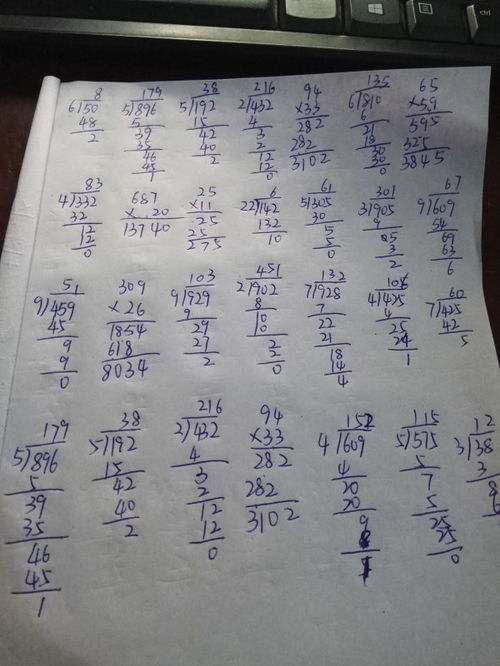 ctrl
8 179 38 216 94 135 65
6)50 5)896 5)192 2)432 ×33 6)810 ×59
48 5 15 4 282 6 595
2 39 42 3 282 21 325
35 40 2 3102 18 3845
46 2 12 30
45 12 30
1 0 0
83 687 25 6 61 301 67
4)332 × 20 ×11 22)142 5)305 3)905 9)609
32 13740 25 132 30 9 54
12 25 10 5 5 69
12 275 5 3 63
0 0 2 6
51 309 103 451 132 106 60
9)459 ×26 9)929 2)902 7)928 4)425 7)425
45 1854 9 8 7 4 42
9 618 29 10 22 25 5
9 8034 27 10 21 24
0 2 2 18 1
2 14
0 4
179 38 216 94 152 115 12
5)896 5)192 2)432 ×33 4)609 5)575 3)38
5 15 4 282 4 5 3
39 42 3 282 20 7 8
35 40 2 3102 20 5 6
46 2 12 9 25
45 12 8 25
1 0 1 0